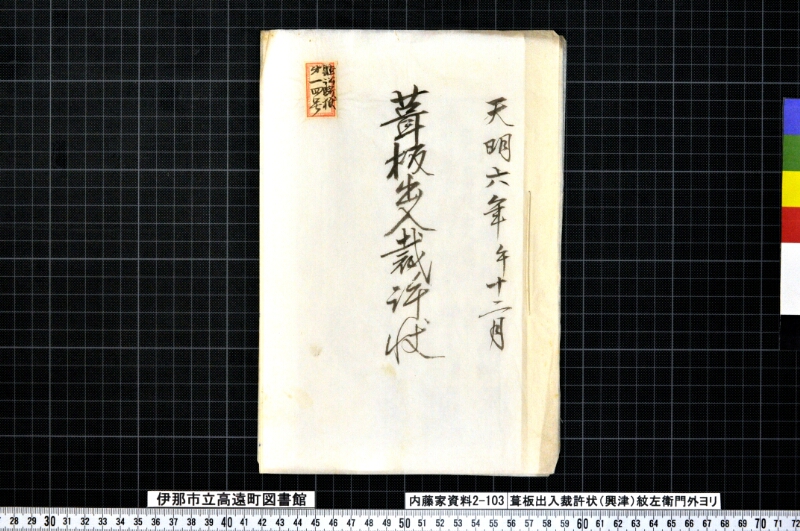 天明六年午十二月
葺板出入裁許状
第一四号
伊那市立高遠町図書館
内藤家資料2-103
葺板出入裁許状(興津)紋左衛門外ヨリ
27 28 29 30 31 32 33 34 35 36 37 38 39 40 41 42 43 44 45 46 47 48 49 50 51 52 53 54 55 56 57 58 59 60 61 62 63 64 65 66 67 68 69 70 71